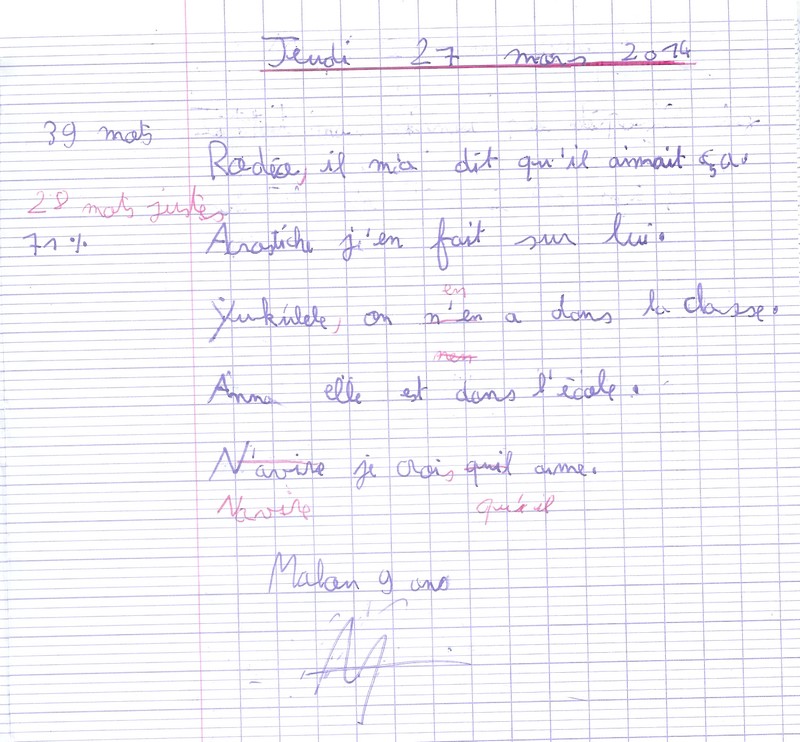 Jeudi 27 mars 2014
39 mots
Rodéo, il m'a dit qu'il aimait ça.
28 mots justes
71%
Acrostiche j'en fait sur lui.
en
Yukulele, on n'en a dans la classe.
Anna elle est dans l'école.
N'avire je crois, qu'il aime.
Navire qu'il
9 ans